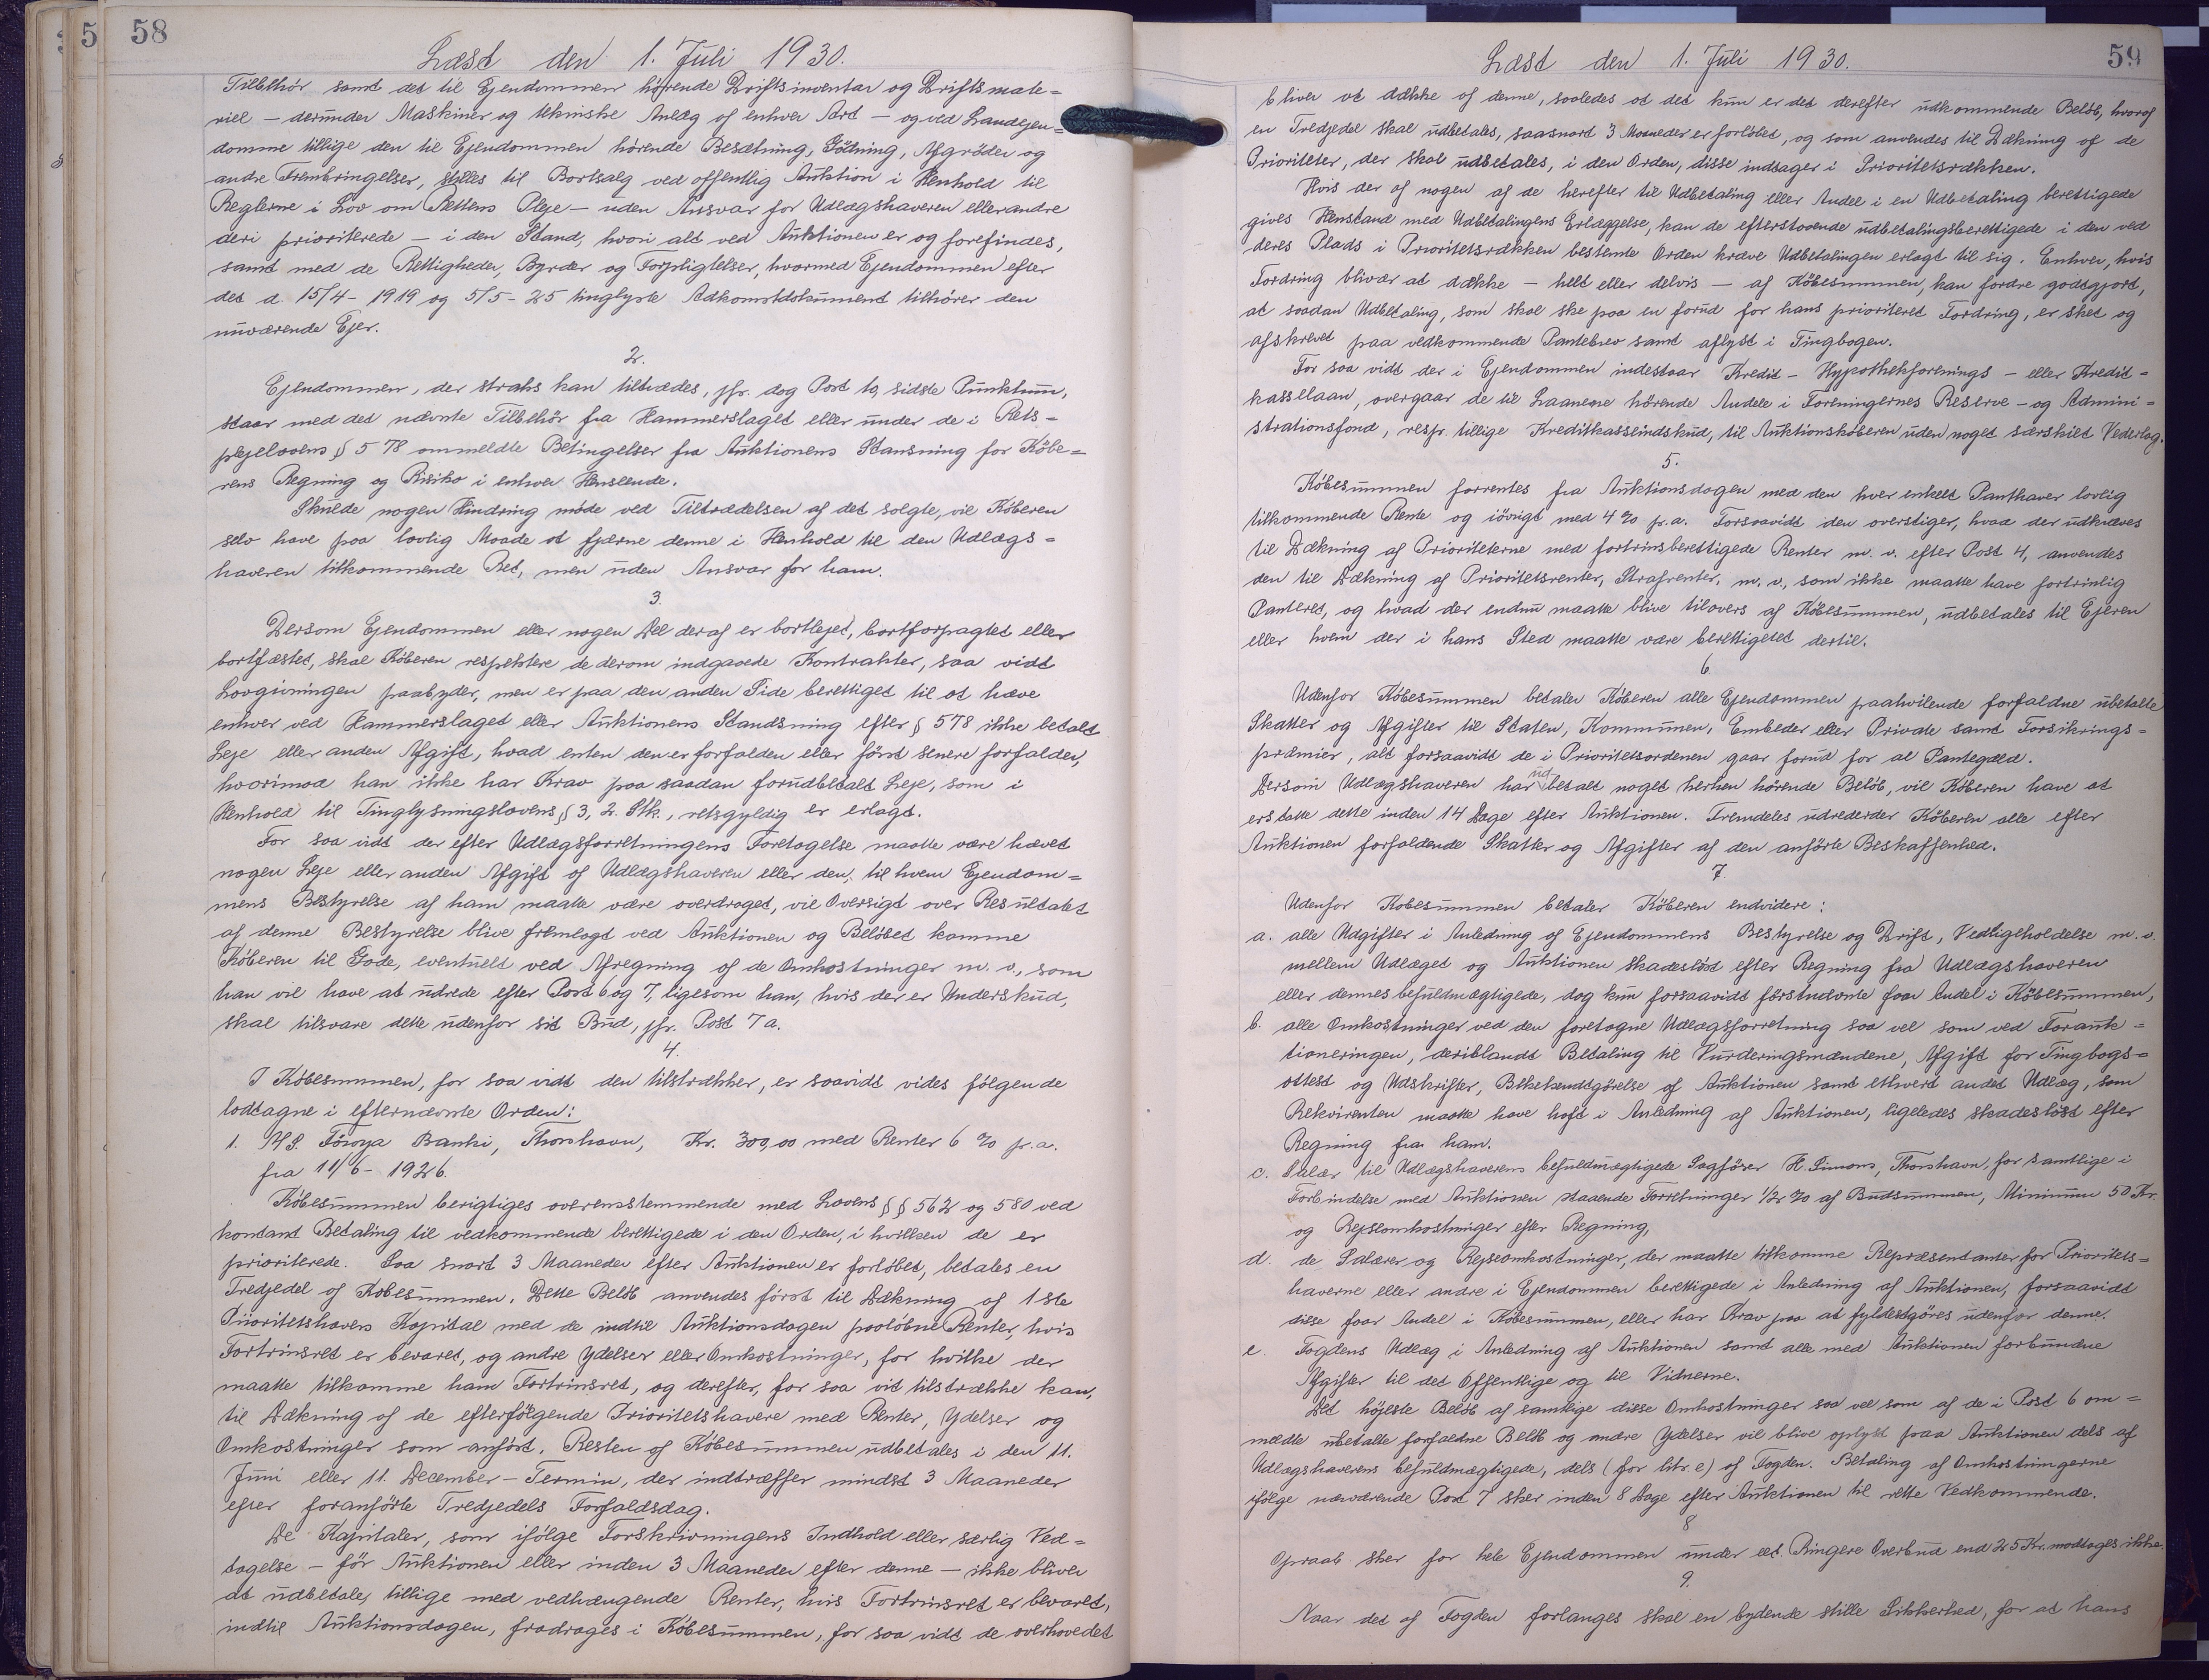 58
Læst den 1. Juli 1930.
Tilbehör samt det til Ejendommen hörende Driftsinventar og Driftsmate=
riel — derunder Maskiner og tekniske Anlæg af enhver Art — og ved Landejen=
domme tillige den til Ejendommen hörende Besætning, Gödning, Afgröder og
andre Frembringelser, stilles til Bortsalg ved offentlig Auktion i Henhold til
Reglerne i Lov om Rettens Pleje — uden Ansvar for Udlægshaveren eller andre
deri prioriterede — i den Stand, hvori alt ved Auktionen er og forefindes,
samt med de Rettigheder, Byrder og Forpligtelser, hvormed Ejendommen efter
det d. 15/4 - 1919 og 5/5 - 25 tinglyste Adkomstdokument tilhörer den
nuværende Ejer.
2.
Ejendommen, der straks kan tiltrædes, jfr. dog Post 19 sidste Punktum,
staar med det nævnte Tilbehör fra Hammerslaget eller under de i Rets=
plejelovens § 578 ommeldte Betingelser fra Auktionens Standsning for Köbe=
rens Regning og Risiko i enhver Henseende.
Skulde nogen Hindring möde ved Tiltrædelsen af det solgte, vil Köberen
selv have paa lovlig Maade at fjærne denne i Henhold til den Udlægs=
haveren tilkommende Ret, men uden Ansvar for ham.
3.
Dersom Ejendommen eller nogen Del deraf er bortlejet, bortforpagtet eller
bortfæstet, skal Köberen respektere de derom indgaaede Kontrakter, saa vidt
Lovgivningen paabyder, men er paa den anden Side berettiget til at hæve
enhver ved Hammerslaget eller Auktionens Standsning efter § 578 ikke betalt
Leje eller anden Afgift, hvad enten den er forfalden eller först senere forfalder,
hvorimod han ikke har Krav paa saadan forudbetalt Leje, som i
Henhold til Tinglysningslovens § 3, 2. Stk., retsgyldig er erlagt.
For saa vidt der efter Udlægsforretningens Foretagelse maatte være hævet
nogen Leje eller anden Afgift af Udlægshaveren eller den, til hvem Ejendom=
mens Bestyrelse af ham maatte være overdraget, vil Oversigt over Resultatet
af denne Bestyrelse blive fremlagt ved Auktionen og Belöbet komme
Köberen til Gode, eventuelt ved Afregning af de Omkostninger m. v., som
han vil have at udrede efter Post 6 og 7, ligesom han, hvis der er Underskud,
skal tilsvare dette udenfor sit Bud, jfr. Post 7 a.
4.
I Köbesummen, for saa vidt den tilstrækker, er saavidt vides fölgende
lodtagne i efternævnte Orden:
1. A/S. Föroya Banki, Thorshavn, Kr. 300,00 med Renter 6 % p.a.
fra 11/6 - 1926.
Köbesummen berigtiges overensstemmende med Lovens §§ 562 og 580 ved
kontant Betaling til vedkommende berettigede i den Orden, i hvilken de er
prioriterede. Saa snart 3 Maaneder efter Auktionen er forlöbet, betales en
Tredjedel af Köbesummen. Dette Belöb anvendes först til Dækning af 1ste
Prioritetshavers Kapital med de indtil Auktionsdagen paalöbne Renter, hvis
Fortrinsret er bevaret, og andre Ydelser eller Omkostninger, for hvilke der
maatte tilkomme ham Fortrinsret, og derefter, for saa vit tilstrække kan,
til Dækning af de efterfölgende Prioritetshavere med Renter, Ydelser og
Omkostninger som anfört. Resten af Köbesummen udbetales i den 11.
Juni eller 11. December-Termin, der indtræffer mindst 3 Maaneder
efter foranförte Tredjedels Forfaldsdag.
De Kapitaler, som ifölge Forskrivningens Indhold eller særlig Ved=
tagelse — för Auktionen eller inden 3 Maaneder efter denne — ikke bliver
at udbetale, tillige med vedhængende Renter, hvis Fortrinsret er bevaret,
indtil Auktionsdagen, fradrages i Köbesummen, for saa vidt de overhovedet
59
Læst den 1. Juli 1930.
bliver at dække af denne, saaledes at det kun er det derefter udkommende Belöb, hvoraf
en Tredjedel skal udbetales, saasnart 3 Maaneder er forlöbet, og som anvendes til Dækning af de
Prioriteter, der skal udbetales, i den Orden, disse indtager i Prioritetsrækken.
Hvis der af nogen af de herefter til Udbetaling eller Andel i en Udbetaling berettigede
gives Henstand med Udbetalingens Erlæggelse, kan de efterstaaende udbetalingsberettigede i den ved
deres Plads i Prioritetsrækken bestemte Orden kræve Udbetalingen erlagt til sig. Enhver, hvis
Fordring blivær at dække — helt eller delvis — af Köbesummen, kan fordre godtgjort,
at saadan Udbetaling, som skal ske paa en forud for hans prioriteret Fordring, er sket og
afskrevet paa vedkommende Pantebrev samt aflyst i Tingbogen.
For saa vidt der i Ejendommen indestaar Kredit- Hypothekforenings- eller Kredit=
kasselaan, overgaar de til Laanene hörende Andele i Foreningernes Reserve- og Admini=
strationsfond, respr. tillige Kreditkasseindskud, til Auktionsköberen uden noget særskilt Vederlag.
5.
Köbesummen forrentes fra Auktionsdagen med den hver enkelt Panthaver lovlig
tilkommende Rente og iövrigt med 4 % p.a. Forsaavidt den overstiger, hvad der udkræves
til Dækning af Prioriteterne med fortrinsberettigede Renter m. v. efter Post 4, anvendes
den til Dækning af Prioritetsrenter, Strafrenter, m. v., som ikke maatte have fortrinlig
Panteret, og hvad der endnu maatte blive tilovers af Köbesummen, udbetales til Ejeren
eller hvem der i hans Sted maatte være berettigetet dertil.
6.
Udenfor Köbesummen betaler Köberen alle Ejendommen paahvilende forfaldne ubetalte
Skatter og Afgifter til Staten, Kommunen, Embeder eller Private samt Forsikrings=
præmier, alt forsaavidt de i Prioritetsordenen gaar forud for al Pantegæld.
Dersom Udlægshaveren har udbetalt noget herhen hörende Belöb, vil Köberen have at
erstatte dette inden 14 Dage efter Auktionen. Fremdeles udrederder Köberen alle efter
Auktionen forfaldende Skatter og Afgifter af den anförte Beskaffenhed.
7.
Udenfor Kobesummen betaler Köberen endvidere:
a. alle Udgifter i Anledning af Ejendommens Bestyrelse og Drift, Vedligeholdelse m. v.
mellem Udlæget og Auktionen skadeslöst efter Regning fra Udlægshaveren
eller dennes befuldmægtigede, dog kun forsaavidt förstnævnte faar Andel i Köbesummen,
b. alle Omkostninger ved den foretagne Udlægsforretning saa vel som ved Forauk=
tioneringen, deriblandt Betaling til Vurderingsmændene, Afgift for Tingbogs=
attest og Udskrifter, Bekekendtgörelse af Auktionen samt ethvert andet Udlæg, som
Rekvirenten maatte have haft i Anledning af Auktionen, ligeledes skadeslöst efter
Regning fra ham.
c. Salær til Udlægshaverens befuldmægtigede Sagförer H. Simons, Thorshavn, for samtlige i
Forbindelse med Auktionen staaende Forretninger 1/2 % af Budsummen, Minimum 50 Kr.
og Rejseomkostninger efter Regning,
d. de Salærer og Rejseomkostninger, der maatte tilkomme Repræsentanter for Prioritets=
haverne eller andre i Ejendommen berettigede i Anledning af Auktionen, forsaavidt
disse faar Andel i Köbesummen, eller har Krav paa at fyldestgöres udenfor denne.
e. Fogdens Udlæg i Anledning af Auktionen samt alle med Auktionen forbundne
Afgifter til det Offentlige og til Vidnerne.
Det höjeste Belöb af samtlige disse Omkostninger saa vel som af de i Post 6 om=
mældte ubetalte forfaldne Belöb og andre Ydelser vil blive oplyst paa Auktionen dels af
Udlægshaverens befuldmægtigede, dels (for litr. e) af Fogden. Betaling af Omkostningerne
ifölge nærværende Post 7 sker inden 8 Dage efter Auktionen til rette Vedkommende.
8
Opraab sker for hele Ejendommen under eet. Ringere Overbud end 25 Kr. modtages ikke.
9.
Naar det af Fogden forlanges skal en bydende stille Sikkerhed, for at hans